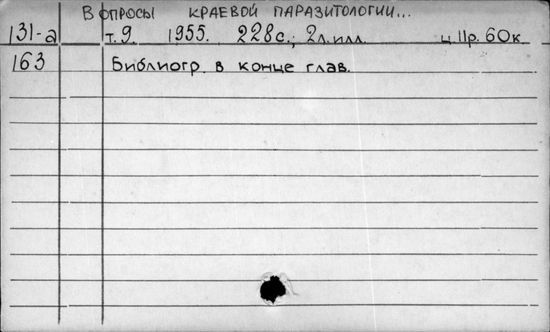 ВОПРОСЫ КРАЕВОЙ ПАРАЗИТОЛОГИИ...
131-а т.9. 1955. 228с.; 2л.илл. ц.11р.60к
163 Библиогр. в конце глав.